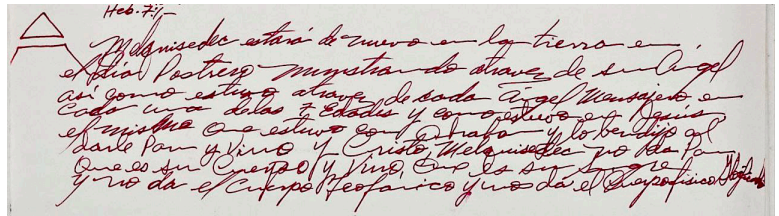 Heb. 7:1-
Melquisedec estará de nuevo en la tierra en
el día Postrero ministrando atravez de su Ángel
así como estuvo atravez de cada Ángel Mensajero en
cada una de las 7 Edades y como estuvo en Jesús,
el mismo que estuvo con Abraham y lo bendijo al
darle Pan y Vino y Cristo Melquisedec nos da Pan
que es su Cuerpo y Vino que es su Sangre
y nos da el Cuerpo Teofánico y nos da el Cuerpo físico Glorificado